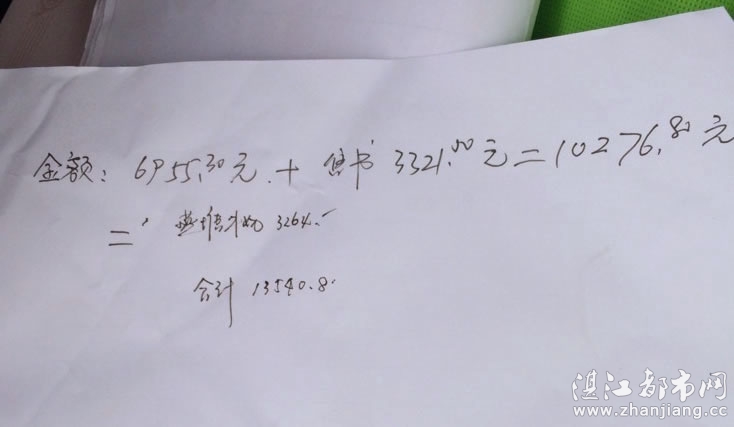 金额：6955.30元.+ 售书 3321.50元=10276.80元
二、 3264.-
合计 13540.8.
湛江都市网
www.zhanjiang.cc